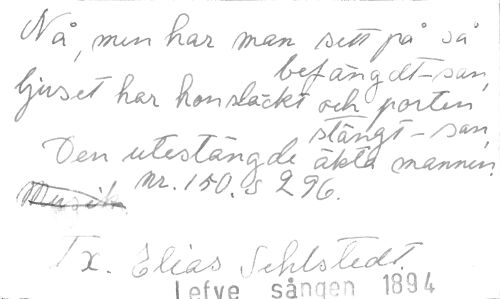 Nå, men har man sett på så
befängdt – san,
ljuset har hon släckt och porten
stängt – san,
Den utestängde äkta mannen.
Musik nr. 150. s 296.
Tx. Elias Sehlstedt.
Lefve sången 1894